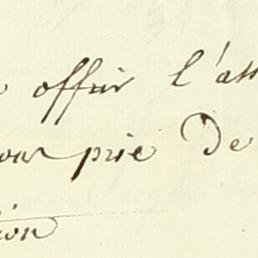 offrir l'ass
vous prie de
ion